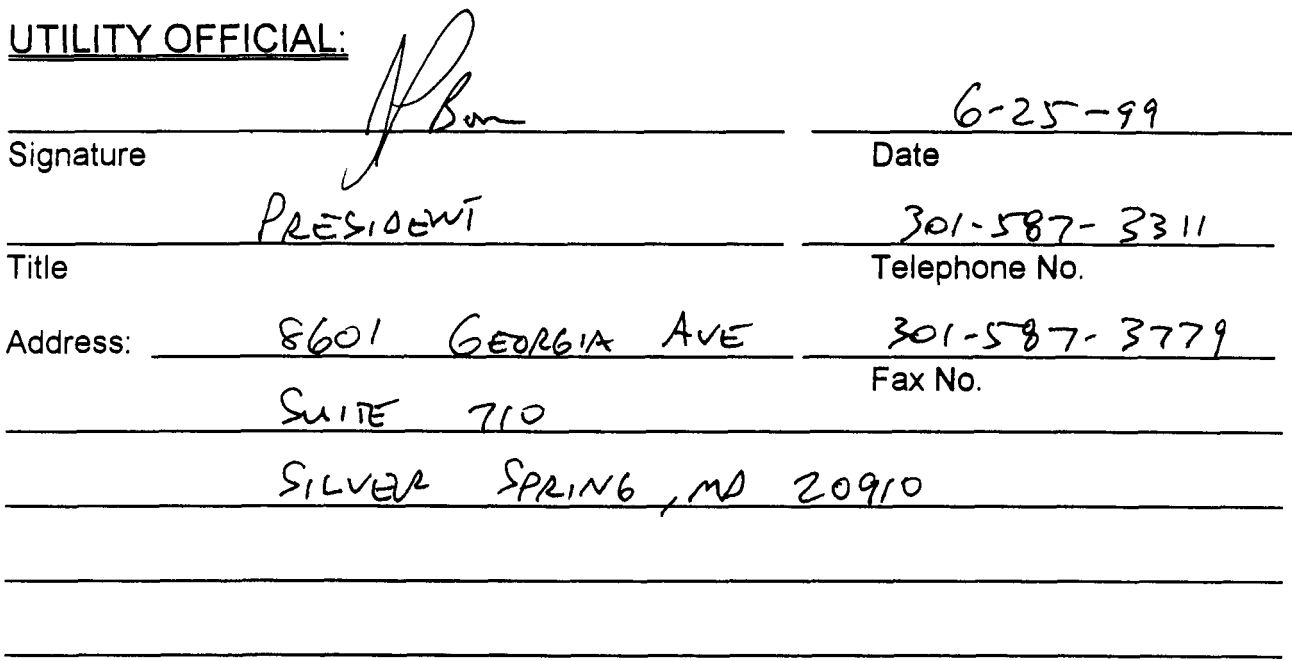 UTILITY OFFICIAL:
6-25-99
Signature Date
PRESIDENT 301-587-3311
Title Telephone No.
Address: 8601 GEORGIA AVE 301-587-3779
Fax No.
SUITE 710
SILVER SPRING, MD 20910